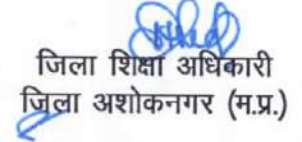 जिला शिक्षा अधिकारी
जिला अशोकनगर (म.प्र.)